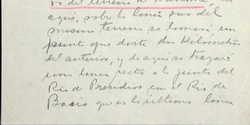 aqui, sobre la linea sur del
mismo terreno se tomará un
punto que diste dos Kilometros
del anterior, y de aqui se trazará
una linea recta a la junta del
Rio de Prendios con el Rio de
que es la ultima linea